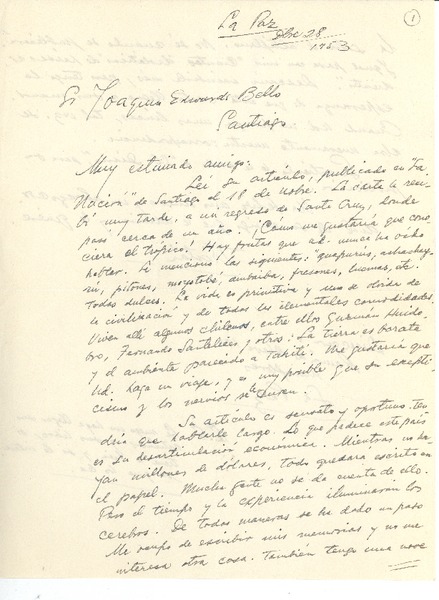 1
La Paz
Dbre 28
1953
Sr Joaquin Edwards Bello
Santiago
Muy estimado amigo:
Leí su artículo, publicado en "La
Nación" de Santiago el 18 de nobre. La carta la reci-
bí muy tarde, a mi regreso de Santa Cruz, donde
pasé cerca de un año. ¡Cómo me gustaría que cono-
ciera el trópico! Hay frutas que Ud. nunca ha oído
hablar. Le menciono las siguientes: guapurus,
pitones, ambaiba, etc.
Todas dulces. La vida es primitiva y uno se olvida de
la civilización y de todas las elementales comodidades.
Viven allí algunos chilenos, entre ellos Guzmán Huido-
bro, Fernando Santelices y otros. La tierra es barata
y el ambiente parecido a Tahití. Me gustaría que
Ud. haga un viaje, y es muy posible que su escepti-
cismo y los nervios se le curen.
Su artículo es sensato y oportuno. Ten-
dría que hablarle largo. Lo que padece este país
es su desarticulación económica. Mientras no ha-
yan millones de dólares, todo quedará escrito en
el papel. Mucha gente no se da cuenta de ello.
Pero el tiempo y la experiencia iluminarán los
cerebros. De todas maneras se ha dado un paso
Me ocupo de escribir mis memorias y no me
interesa otra cosa. También tengo una nove